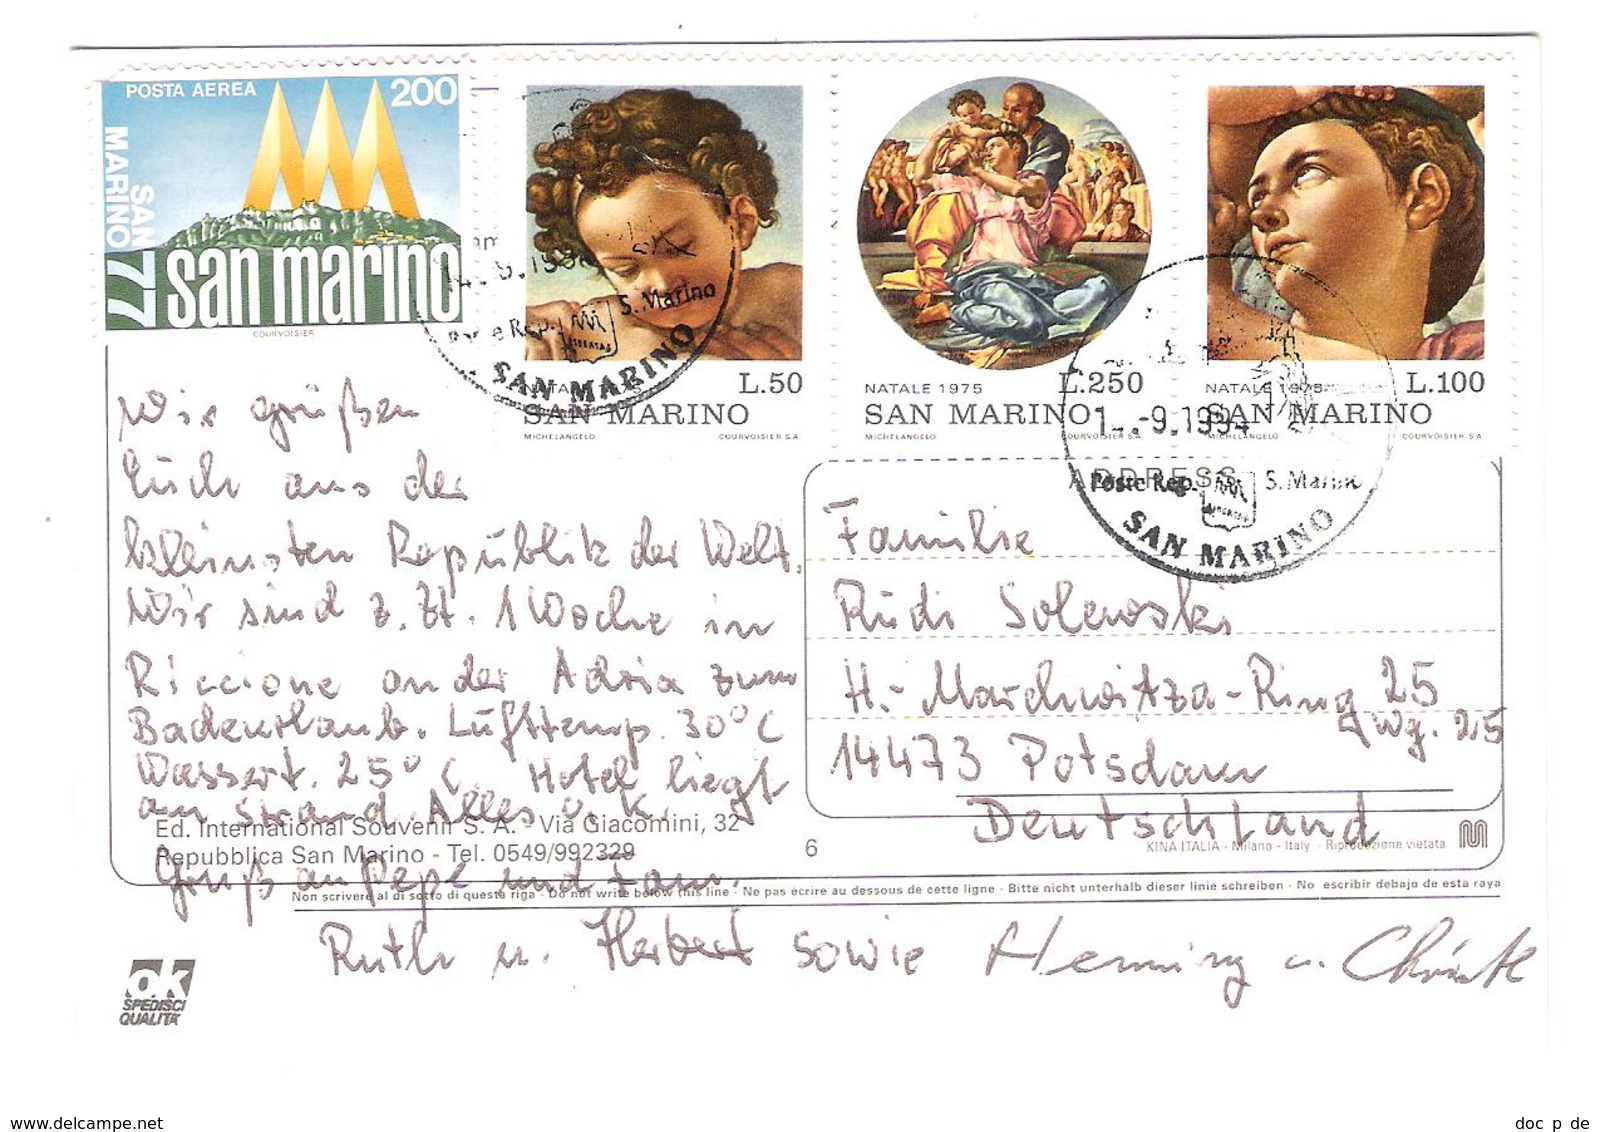 POSTA AEREA 200
SAN MARINO 77
san marino
COURVOISIER
NATALE 1975 L.50
SAN MARINO
MICHELANGELO COURVOISIER S.A.
NATALE 1975 L.250
SAN MARINO
MICHELANGELO COURVOISIER S.A.
NATALE 1975 L.100
SAN MARINO
MICHELANGELO COURVOISIER S.A.
Poste Rep. S. Marino
SAN MARINO
-9.1994
Poste Rep. S. Marino
LIBERTAS
SAN MARINO
Wir grüßen
Euch aus der
kleinsten Republik der Welt.
Wir sind z. Zt. 1 Woche in
Riccione an der Adria zum
Badeurlaub. Lufttemp. 30°C
Wassert. 25°C. Hotel liegt
am Strand. Alles o. K.
Gruß an Pepe und Fam.
Ruth u. Herbert sowie Henning u.
ADDRESS
Familie
Rudi Solewski
H.-Marchwitza-Ring 25
Wg. 25
14473 Potsdam
Deutschland
Ed. International Souvenir S. A. - Via Giacomini, 32
Repubblica San Marino - Tel. 0549/992329
6
KINA ITALIA - Milano - Italy - Riproduzione vietata
Non scrivere al di sotto di questa riga - Do not write below this line - Ne pas écrire au dessous de cette ligne - Bitte nicht unterhalb dieser linie schreiben - No escribir debajo de esta raya
OK
SPEDISCI
QUALITA'
www.delcampe.net
doc_p_de